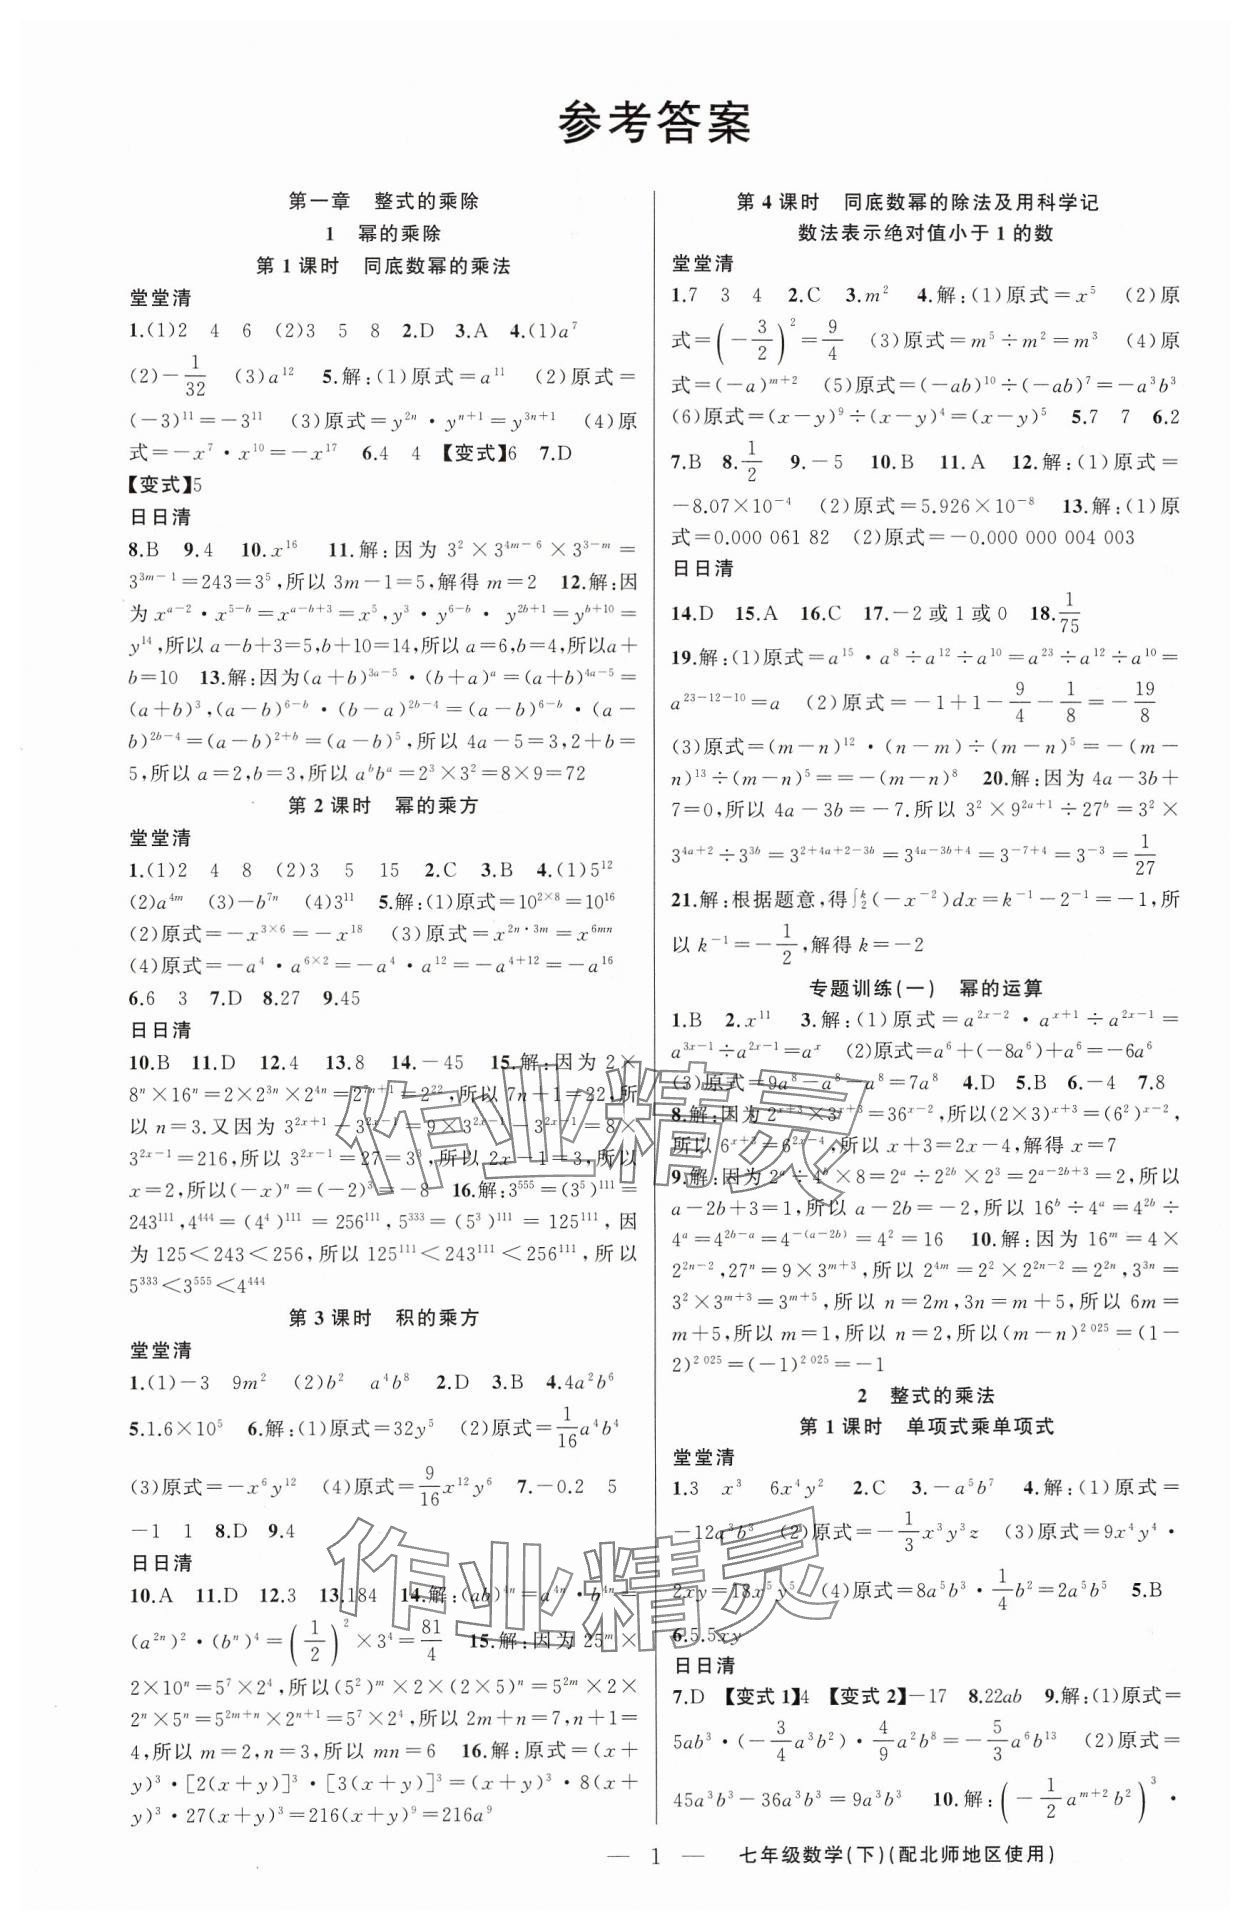 参考答案
第一章　整式的乘除
1　幂的乘除
第 1 课时　同底数幂的乘法
堂堂清
1.(1)2　4　6　(2)3　5　8　2.D　3.A　4.(1)a⁷
(2)－1/32　(3)a¹²　5.解:(1)原式＝a¹¹　(2)原式＝
(－3)¹¹＝－3¹¹　(3)原式＝y²ⁿ·yⁿ⁺¹＝y³ⁿ⁺¹　(4)原
式＝－x⁷·x¹⁰＝－x¹⁷　6.4　4　【变式】6　7.D
【变式】5
日日清
8.B　9.4　10.x¹⁶　11.解:因为 3²×3^(4m－6)×3^(3－m)＝
3^(3m－1)＝243＝3⁵,所以 3m－1＝5,解得 m＝2　12.解:因
为 x^(a－2)·x^(5－b)＝x^(a－b+3)＝x⁵,y³·y^(6－b)·y^(2b+1)＝y^(b+10)＝
y¹⁴,所以 a－b+3＝5,b+10＝14,所以 a＝6,b＝4,所以a+
b＝10　13.解:因为(a+b)^(3a－5)·(b+a)^a＝(a+b)^(4a－5)＝
(a+b)³,(a－b)^(6－b)·(b－a)^(2b－4)＝(a－b)^(6－b)·(a－
b)^(2b－4)＝(a－b)^(2+b)＝(a－b)⁵,所以 4a－5＝3,2+b＝
5,所以 a＝2,b＝3,所以 a^b b^a＝2³×3²＝8×9＝72
第 2 课时　幂的乘方
堂堂清
1.(1)2　4　8　(2)3　5　15　2.C　3.B　4.(1)5¹²
(2)a^(4m)　(3)－b^(7n)　(4)3¹¹　5.解:(1)原式＝10^(2×8)＝10¹⁶
(2)原式＝－x^(3×6)＝－x¹⁸　(3)原式＝x^(2n·3m)＝x^(6mn)
(4)原式＝－a⁴·a^(6×2)＝－a⁴·a¹²＝－a^(4+12)＝－a¹⁶
6.6　3　7.D　8.27　9.45
日日清
10.B　11.D　12.4　13.8　14.－45　15.解:因为 2×
8ⁿ×16ⁿ＝2×2^(3n)×2^(4n)＝2^(7n+1)＝2²²,所以 7n+1＝22,所
以 n＝3.又因为 3^(2x+1)－3^(2x－1)＝9×3^(2x－1)－3^(2x－1)＝8×
3^(2x－1)＝216,所以 3^(2x－1)＝27＝3³,所以 2x－1＝3,所以
x＝2,所以(－x)ⁿ＝(－2)³＝－8　16.解:3⁵⁵⁵＝(3⁵)¹¹¹＝
243¹¹¹,4⁴⁴⁴＝(4⁴)¹¹¹＝256¹¹¹,5³³³＝(5³)¹¹¹＝125¹¹¹,因
为 125＜243＜256,所以 125¹¹¹＜243¹¹¹＜256¹¹¹,所以
5³³³＜3⁵⁵⁵＜4⁴⁴⁴
第 3 课时　积的乘方
堂堂清
1.(1)－3　9m²　(2)b²　a⁴b⁸　2.D　3.B　4.4a²b⁶
5.1.6×10⁵　6.解:(1)原式＝32y⁵　(2)原式＝1/16a⁴b⁴
(3)原式＝－x⁶y¹²　(4)原式＝9/16x¹²y⁶　7.－0.2　5
－1　1　8.D　9.4
日日清
10.A　11.D　12.3　13.184　14.解:(ab)^(4n)＝a^(4n)·b^(4n)＝
(a^(2n))²·(bⁿ)⁴＝(1/2)²×3⁴＝81/4　15.解:因为 25^m×
2×10ⁿ＝5⁷×2⁴,所以(5²)^m×2×(2×5)ⁿ＝5^(2m)×2×
2ⁿ×5ⁿ＝5^(2m+n)×2^(n+1)＝5⁷×2⁴,所以 2m+n＝7,n+1＝
4,所以 m＝2,n＝3,所以 mn＝6　16.解:原式＝(x+
y)³·[2(x+y)]³·[3(x+y)]³＝(x+y)³·8(x+
y)³·27(x+y)³＝216(x+y)⁹＝216a⁹
第 4 课时　同底数幂的除法及用科学记
数法表示绝对值小于 1 的数
堂堂清
1.7　3　4　2.C　3.m²　4.解:(1)原式＝x⁵　(2)原
式＝(－3/2)²＝9/4　(3)原式＝m⁵÷m²＝m³　(4)原
式＝(－a)^(m+2)　(5)原式＝(－ab)¹⁰÷(－ab)⁷＝－a³b³
(6)原式＝(x－y)⁹÷(x－y)⁴＝(x－y)⁵　5.7　7　6.2
7.B　8.1/2　9.－5　10.B　11.A　12.解:(1)原式＝
－8.07×10⁻⁴　(2)原式＝5.926×10⁻⁸　13.解:(1)原
式＝0.000 061 82　(2)原式＝－0.000 000 004 003
日日清
14.D　15.A　16.C　17.－2 或 1 或 0　18.1/75
19.解:(1)原式＝a¹⁵·a⁸÷a¹²÷a¹⁰＝a²³÷a¹²÷a¹⁰＝
a^(23－12－10)＝a　(2)原式＝－1+1－9/4－1/8＝－19/8
(3)原式＝(m－n)¹²·(n－m)÷(m－n)⁵＝－(m－
n)¹³÷(m－n)⁵＝－(m－n)⁸　20.解:因为 4a－3b+
7＝0,所以 4a－3b＝－7.所以 3²×9^(2a+1)÷27^b＝3²×
3^(4a+2)÷3^(3b)＝3^(2+4a+2－3b)＝3^(4a－3b+4)＝3^(－7+4)＝3⁻³＝1/27
21.解:根据题意,得∫₂^k(－x⁻²)dx＝k⁻¹－2⁻¹＝－1,所
以 k⁻¹＝－1/2,解得 k＝－2
专题训练(一)　幂的运算
1.B　2.x¹¹　3.解:(1)原式＝a^(2x－2)·a^(x+1)÷a^(2x－1)＝
a^(3x－1)÷a^(2x－1)＝a^x　(2)原式＝a⁶+(－8a⁶)+a⁶＝－6a⁶
(3)原式＝9a⁸－a⁸－a⁸＝7a⁸　4.D　5.B　6.－4　7.8
8.解:因为 2^(x+3)×3^(x+3)＝36^(x－2),所以(2×3)^(x+3)＝(6²)^(x－2),
所以 6^(x+3)＝6^(2x－4),所以 x+3＝2x－4,解得 x＝7
9.解:因为 2^a÷4^b×8＝2^a÷2^(2b)×2³＝2^(a－2b+3)＝2,所以
a－2b+3＝1,所以 a－2b＝－2,所以 16^b÷4^a＝4^(2b)÷
4^a＝4^(2b－a)＝4^(－(a－2b))＝4²＝16　10.解:因为 16^m＝4×
2^(2n－2),27ⁿ＝9×3^(m+3),所以 2^(4m)＝2²×2^(2n－2)＝2^(2n),3^(3n)＝
3²×3^(m+3)＝3^(m+5),所以 n＝2m,3n＝m+5,所以 6m＝
m+5,所以 m＝1,所以 n＝2,所以(m－n)^(2 025)＝(1－
2)^(2 025)＝(－1)^(2 025)＝－1
2　整式的乘法
第 1 课时　单项式乘单项式
堂堂清
1.3　x³　6x⁴y²　2.C　3.－a⁵b⁷　4.解:(1)原式＝
－12a³b³　(2)原式＝－1/3x³y³z　(3)原式＝9x⁴y⁴·
2xy＝18x⁵y⁵　(4)原式＝8a⁵b³·1/4b²＝2a⁵b⁵　5.B
6.5.5xy
日日清
7.D　【变式 1】4　【变式 2】－17　8.22ab　9.解:(1)原式＝
5ab³·(－3/4a³b²)·4/9a²b⁸＝－5/3a⁶b¹³　(2)原式＝
45a³b³－36a³b³＝9a³b³　10.解:(－1/2a^(m+2)b²)³·
— 1 —　七年级数学(下)(配北师地区使用)
作业精灵
作业精灵